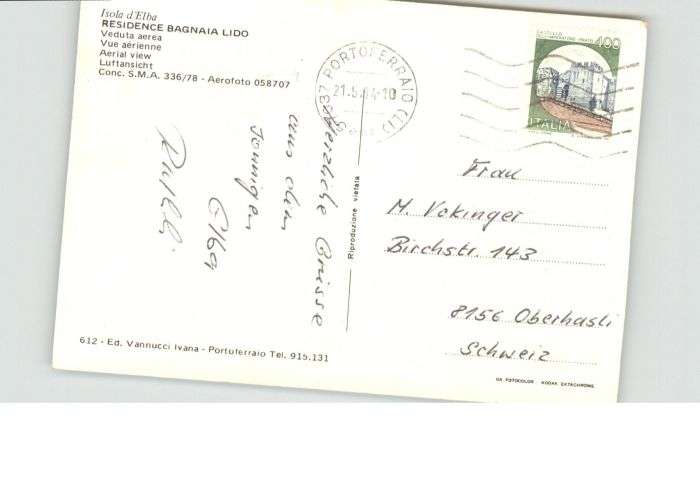 Isola d'Elba
RESIDENCE BAGNAIA LIDO
Veduta aerea
Vue aérienne
Aerial view
Luftansicht
Conc. S.M.A. 336/78 - Aerofoto 058707
PORTOFERRAIO (LI)
21.5.84-10
400
ITALIA
Herzliche Grüsse
aus dem
sonnigen
Elba
Riproduzione vietata
Frau
M. Vokinger
Birchstr. 143
8156 Oberhasli
Schweiz
612 - Ed. Vannucci Ivana - Portoferraio Tel. 915.131
FOTOCOLOR KODAK EKTACHROME